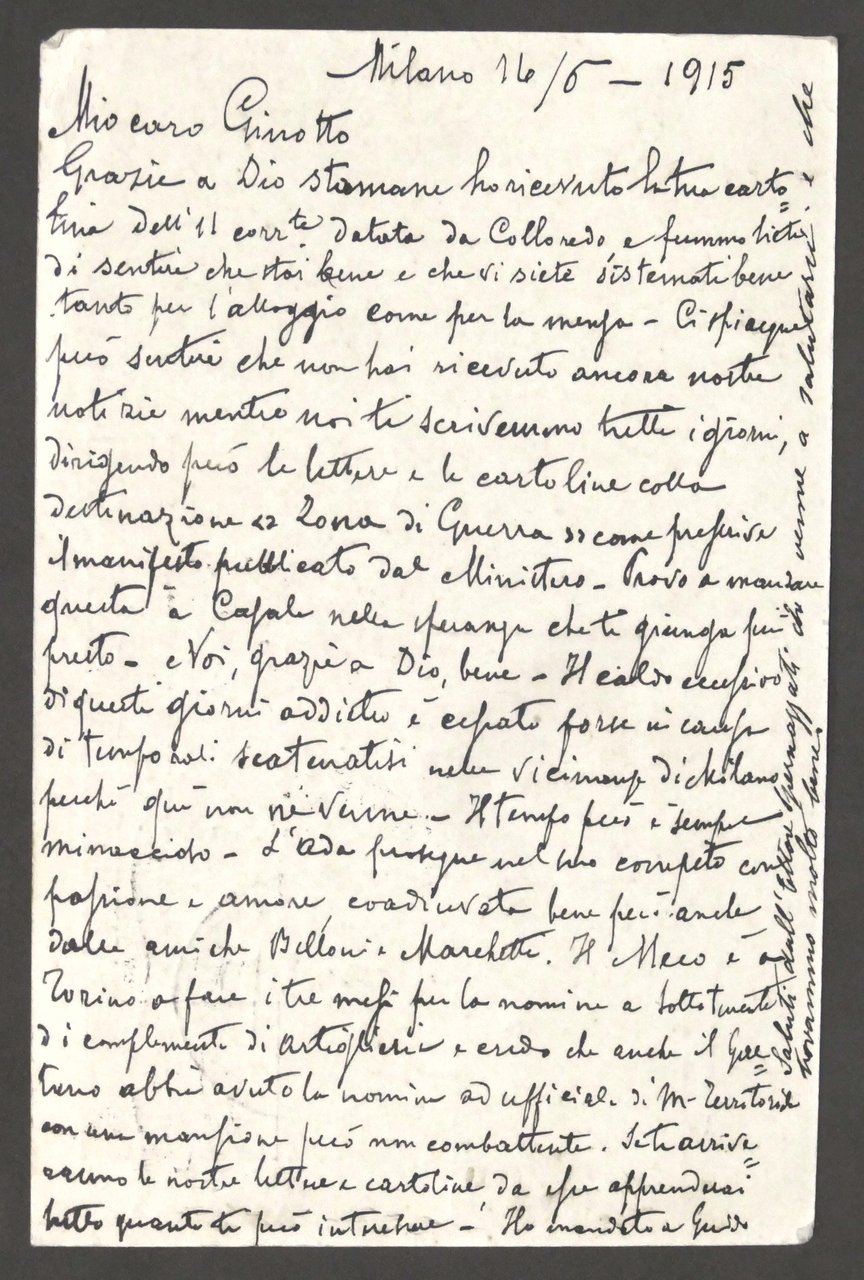 Milano 16/6 - 1915
Mio caro Ginotto
Grazie a Dio stamane ho ricevuto la tua carto=
lina dell'11 corr.te datata da Colloredo e fummo lieti
di sentire che stai bene e che vi siete sistemati bene
tanto per l'alloggio come per la mensa - Ci spiacque
però sentire che non hai ricevuto ancora nostre
notizie mentre noi ti scrivemmo tutti i giorni,
dirigendo però le lettere e le cartoline colla
destinazione « Zona di Guerra » come prescrive
il manifesto pubblicato dal Ministero - Provo a mandare
questa a Casale nella speranza che ti giunga più
presto - e Noi, grazie a Dio, bene - Il caldo eccessivo
di questi giorni addietro è cessato forse in causa
di temporali scatenatisi nelle vicinanze di Milano
perchè quì non ne venne - Il tempo però è sempre
minaccioso - L'Ada prosegue nel suo compito con
passione e amore, coadiuvata bene però anche
dalle amiche Belloni e Marchetti. Il Meco è a
Torino a fare i tre mesi per la nomina a Sottotenente
di complemento di artiglieria e credo che anche il
abbia avuto la nomina ad ufficiale di M- Territoriale
con una mansione però non combattente. Se ti arrive=
ranno le nostre lettere e cartoline da esse apprenderai
tutto quanto ti può interessare - Ho mandato a Guido
Saluti dall'Ettore che venne a salutarci e che
trovammo molto bene.